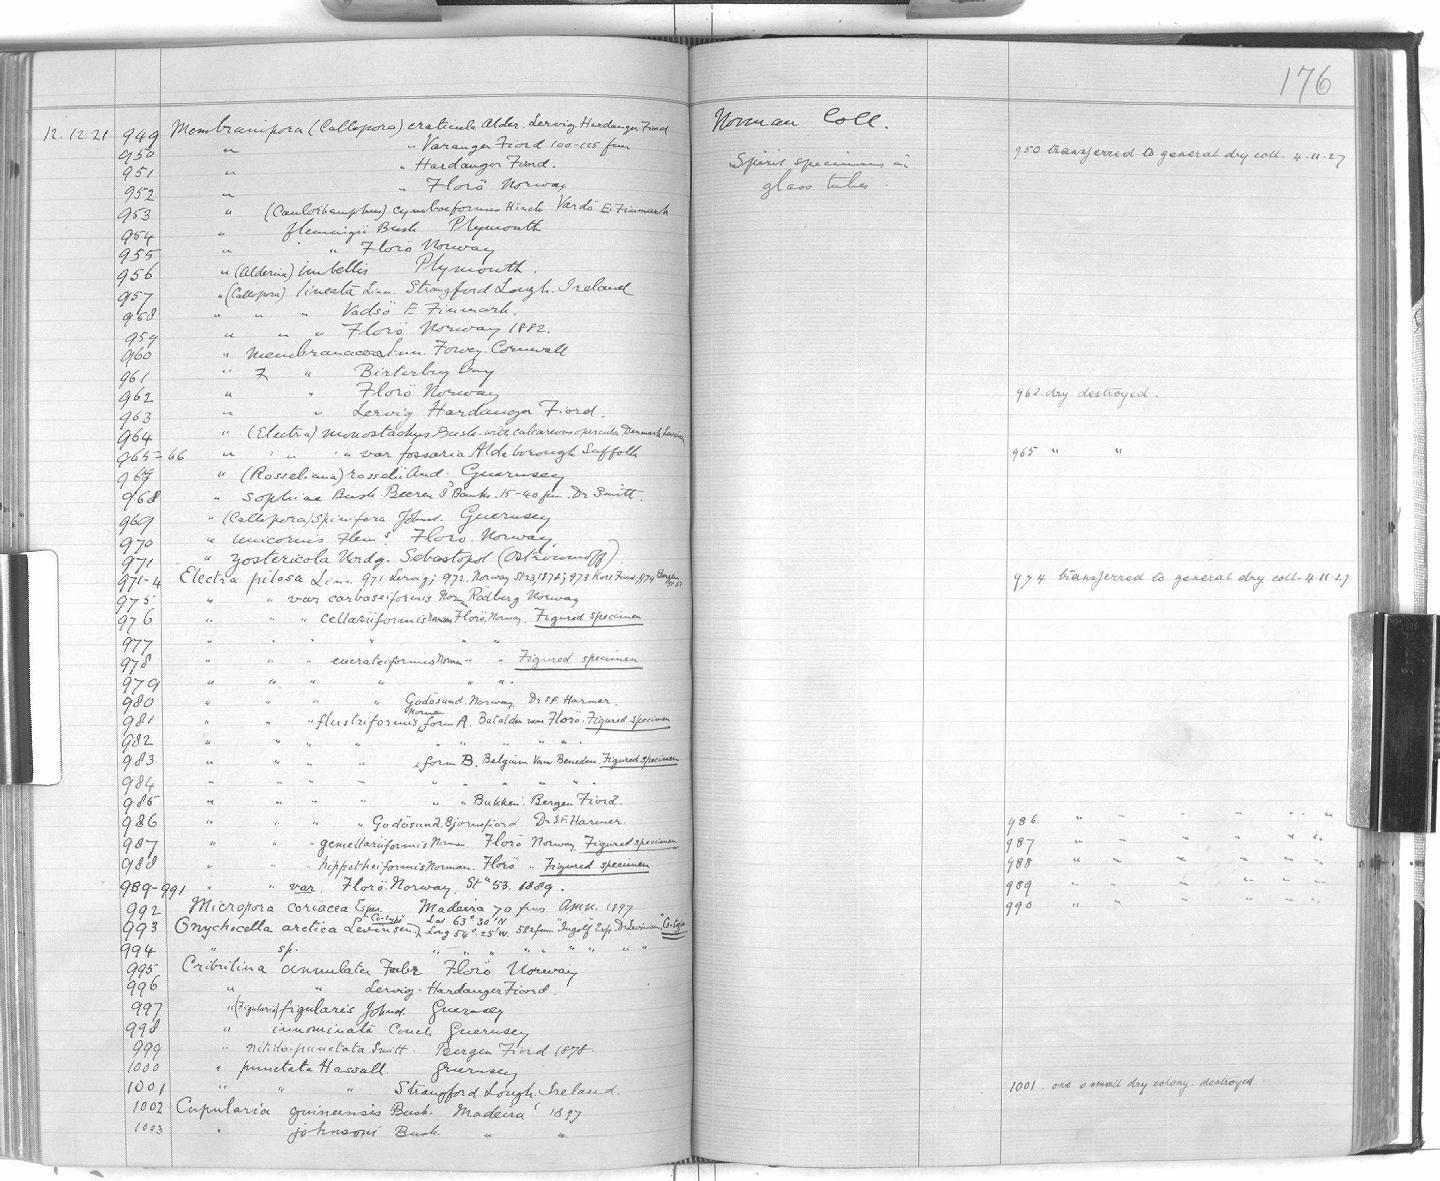 176
12.12.21 949 Membranipora (Callopora) craticula Alder. Lervig Hardanger Fiord Norman Coll.
950 " " Varanger Fiord 100-115 fms Spirit specimens in glass tubes. 950 transferred to general dry coll. 4.11.27
951 " " Hardanger Fiord.
952 " " Florö Norway
953 " (Cauloramphus) cymbaeformis Hincks Vardö E. Finmark
954 " flemingii Busk Plymouth
955 " " Florö Norway
956 " (Alderina) imbellis Plymouth.
957 " (Callopora) lineata Linn. Strangford Lough. Ireland
958 " " " Vadsö E Finmark.
959 " " " Florö Norway 1882.
960 " membranacea Linn. Fowey. Cornwall
961 " " Birterbuy Bay
962 " " Florö Norway 962. dry destroyed.
963 " " Lervig Hardanger Fiord.
964 " (Electra) monostachys Busk. with calcareous opercula Denmark
965-66 " " " " var fossaria Aldeborough Suffolk 965 " "
967 " (Rosseliana) rosselii Aud. Guernsey
968 " sophiae Busk Beeren Id Banks. 15-40 fm. Dr Smitt.
969 " (Callopora) spinifera Johnst. Guernsey
970 " unicornis Flemg Florö. Norway
971 " zostericola Nrdg. Sebastopol (Ostroumoff)
971-4 Electra pilosa Linn. 971 Lervig; 972. Norway 1878; 973 Fiord; 974 Bergen 974 transferred to general dry coll. 4.11.27
975 " " var carbaseiformis Norm Rodberg Norway
976 " " " cellariiformis Norman Florö. Norway. Figured specimen
977 " " " " " "
978 " " " eucrateiformis Norman " " Figured specimen
979 " " " " " "
980 " " " " Godösund. Norway. Dr S.F. Harmer.
981 " " " flustriformis Norman, form A. Batalden near Florö. Figured specimen
982 " " " " " " " " " "
983 " " " " , form B. Belgium Van Beneden. Figured specimen
984 " " " " " " " " "
985 " " " " " " Bukken. Bergen Fiord.
986 " " " " " Godösund. Bjornefiord Dr S.F. Harmer. 986 " " " " " "
987 " " " gemellariiformis Norman Florö Norway. Figured specimen 987 " " " " " "
988 " " " hippothoiformis Norman. Florö " Figured specimen 988 " " " " " "
989-991 " " var. Florö. Norway. Stn 53. 1889. 989 " " " " "
992 Micropora coriacea Esper Madeira 70 fms Amn. 1897 990 " " " " "
993 Onychocella arctica Levinsen "Co-type" Lat 63° 30' N Long 54° 25' W. 582 fm "Ingolf" Exp. Dr Levinsen "Co-type"
994 " sp. " " " " " " "
995 Cribrilina annulata Fabr Florö Norway
996 " " Lervig. Hardanger Fiord.
997 " (Figularia) figularis Johnst. Guernsey
998 " innominata Couch Guernsey
999 " nitido-punctata Smitt. Bergen Fiord 1878.
1000 " punctata Hassall. Guernsey
1001 " " " Strangford Lough. Ireland. 1001. one small dry colony. destroyed.
1002 Cupularia guineensis Busk. Madeira 1897
1003 " johnsoni Busk. " "